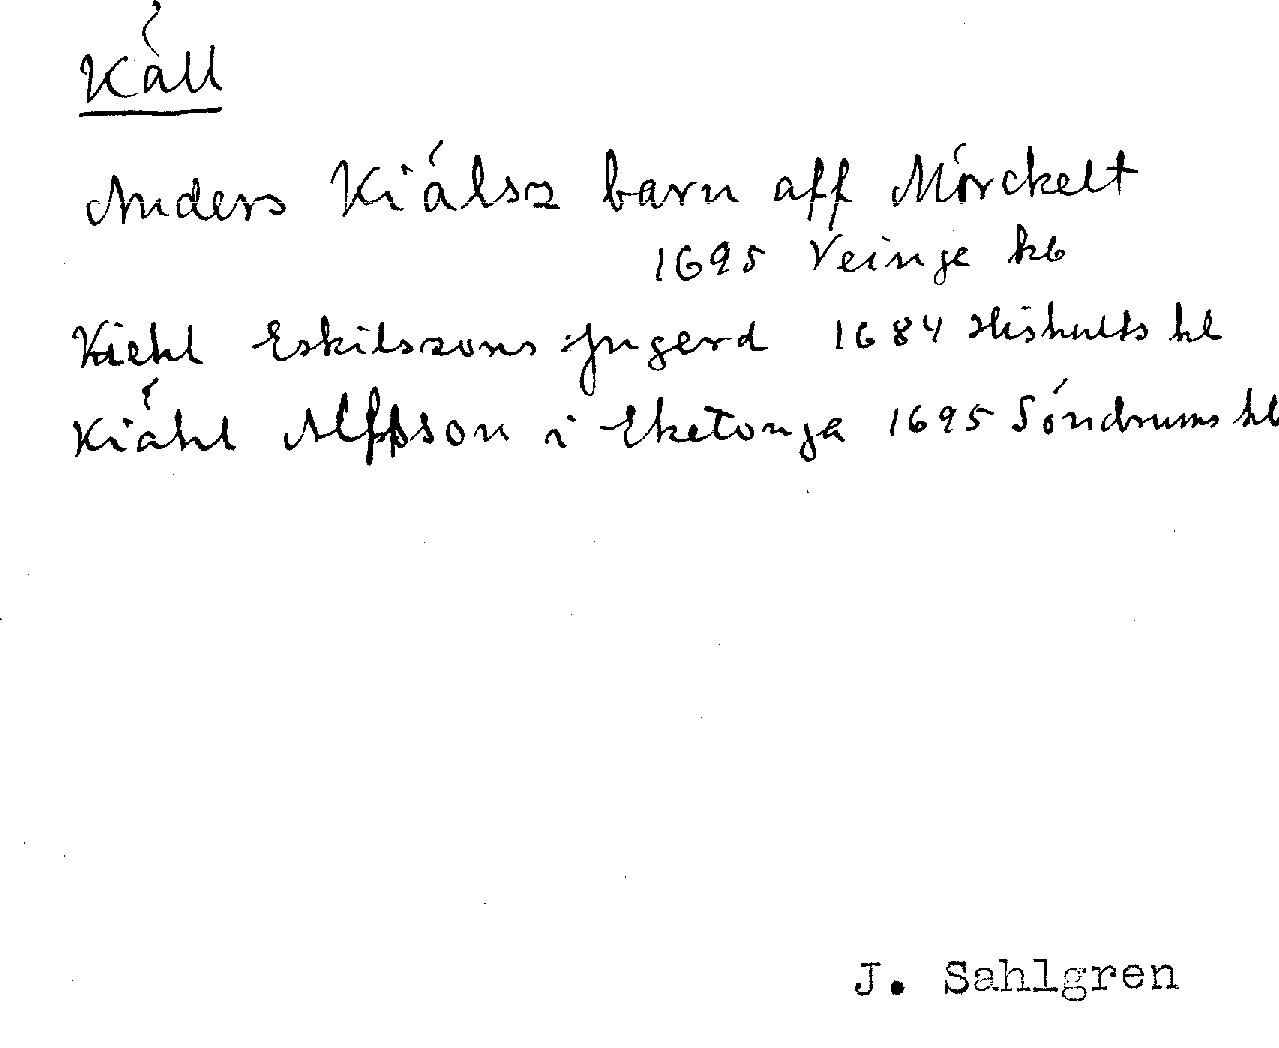 Käll
Anders Kiälsz barn aff Mörckelt
1695 Veinge kb
Kiehl Eskilszons Jngerd 1684 Hishults kb
Kiähl Alfsson i Eketonga 1695 Söndrums kb
J. Sahlgren